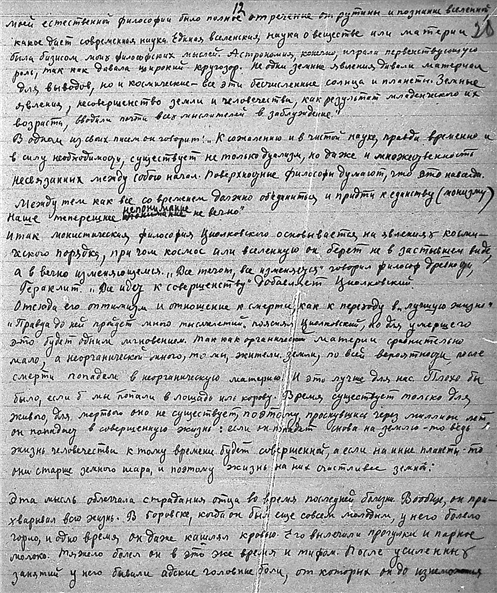 12
моей естественной философии было полное отречение от рутины и познание вселенной
какое дает современная наука. Единая вселенская наука о веществе или материи
была базисом моих философских мыслей. Астрономия, конечно, играла первенствующую
роль, так как давала широкий кругозор. Не одни земные явления давали материал
для выводов, но и космические – все эти бесчисленные солнца и планеты. Земные
явления, несовершенство земли и человечества, как результат младенческого их
возраста, вводили почти всех мыслителей в заблуждение."
В одном из своих писем он говорит: "К сожалению и в чистой науке, правда временно и
в силу необходимости, существует не только дуализм, но даже и множественность
несвязанных между собою начал. Поверхностные философы думают, что это навсегда.
Между тем как все со временем должно объединиться и придти к единству (монизму)
Наше теперешнее непонимание не вечно"
Итак монистическая философия Циолковского основывается на явлениях косми-
ческого порядка, при чем космос или вселенную он берет не в застывшем виде,
а в вечно изменяющемся. "Все течет, все изменяется" говорил философ древности
Гераклит. "Все идет к совершенству" добавляет Циолковский.
Отсюда его оптимизм и отношение к смерти, как к переходу в "лучшую жизнь"
"Правда до ней пройдет много тысячелетий. пояснял Циолковский, но для умершего
это будет одним мгновением. Так как органической материи сравнительно
мало, а неорганической много, то мы, жители земли, по всей вероятности, после
смерти попадем в неорганическую материю. И это лучше для нас. Плохо бы
было, если б мы попали в лошадь или корову. Время существует только для
живого, для мертвого оно не существует, поэтому, проснувшись через миллион лет,
он попадает в совершенную жизнь: если он попадет снова на землю – то ведь
жизнь человечества к тому времени будет совершенной, а если на иные планеты – то
они старше земного шара, и поэтому жизнь на них счастливее земной."
Эта мысль облегчала страдания отца во время последней болезни. Вообще, он при-
хварывал всю жизнь. В Боровске, когда он был еще совсем молодым, у него болело
горло, и одно время он даже кашлял кровью. Его вылечили прогулки и парное
молоко. Тяжело болел он в это же время и тифом. После усиленных
занятий у него бывали адские головные боли, от которых он до